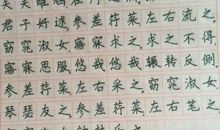 君子好逑。参差荇菜,左右流之。
窈窕淑女,寤寐求之。求之不得,
寤寐思服。悠哉悠哉,辗转反侧。
参差荇菜,左右采之。窈窕淑女,
琴瑟友之。参差荇菜,左右芼之。